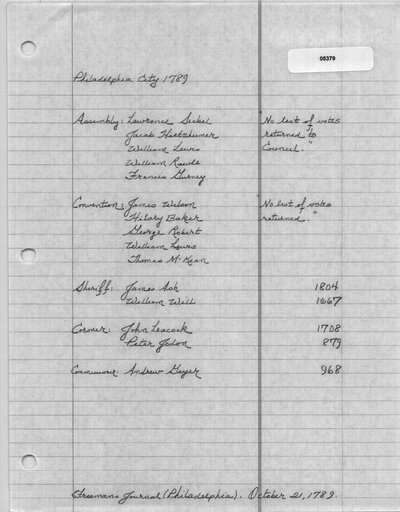 05379
Philadelphia City 1789
Assembly: Lawrence Sickel "No list of votes
Jacob Hiltzheimer returned to
William Lewis Council."
William Rawle
Francis Gurney
Convention: James Wilson "No list of votes
Hilary Baker returned."
George Robert
William Lewis
Thomas McKean
Sheriff: James Ash 1804
William Will 1667
Coroner: John Leacock 1708
Peter 879
Commissioner: Andrew Geyer 968
Freemans Journal (Philadelphia). October 21, 1789.